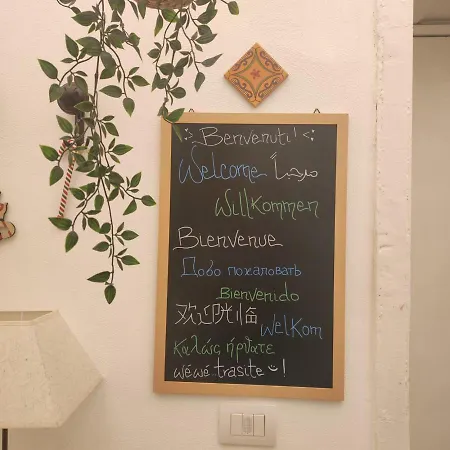 Benvenuti!
Welcome مرحباً
Willkommen
Bienvenue
Добо пожаловать
Bienvenido
欢迎光临
Welkom
Καλώς ήρθατε
wéwé trasite !